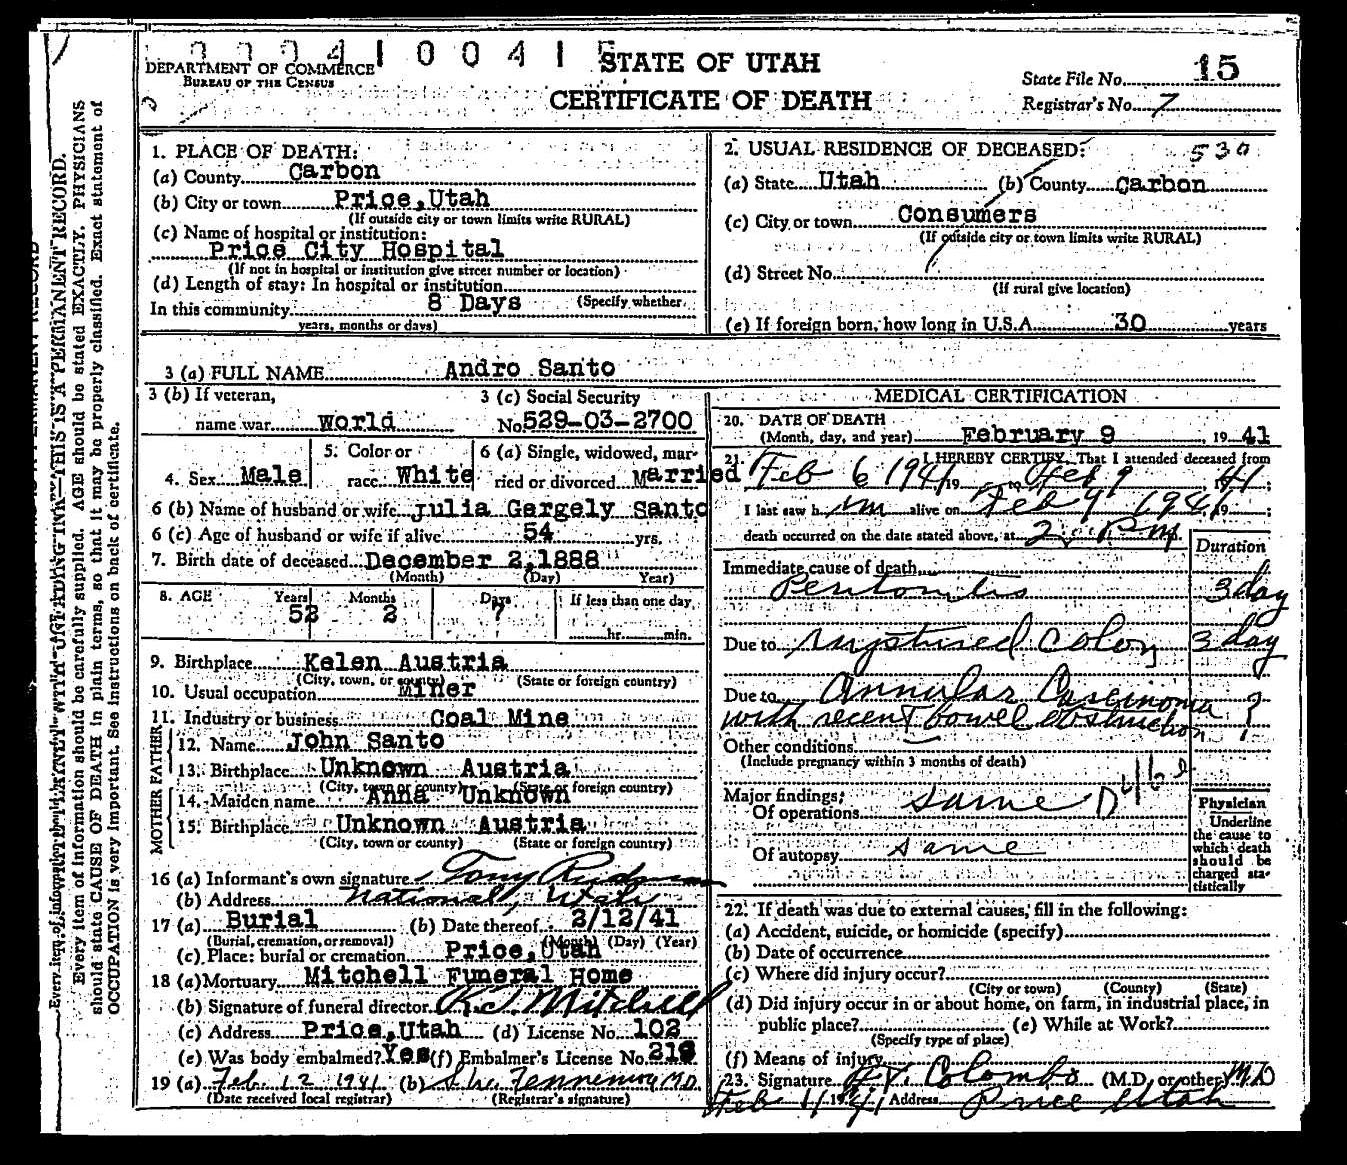 0004100415
DEPARTMENT OF COMMERCE
BUREAU OF THE CENSUS
STATE OF UTAH
CERTIFICATE OF DEATH
State File No. 15
Registrar's No. 7
Every item of information should be carefully supplied. AGE should be stated EXACTLY. PHYSICIANS
should state CAUSE OF DEATH in plain terms, so that it may be properly classified. Exact statement of
OCCUPATION is very important. See instructions on back of certificate.
1. PLACE OF DEATH:
(a) County Carbon
(b) City or town Price, Utah
(If outside city or town limits write RURAL)
(c) Name of hospital or institution:
Price City Hospital
(If not in hospital or institution give street number or location)
(d) Length of stay: In hospital or institution
In this community 8 Days (Specify whether
years, months or days)
2. USUAL RESIDENCE OF DECEASED: 530
(a) State Utah (b) County Carbon
(c) City or town Consumers
(If outside city or town limits write RURAL)
(d) Street No.
(If rural give location)
(e) If foreign born, how long in U.S.A. 30 years
3 (a) FULL NAME Andro Santo
3 (b) If veteran,
name war World
3 (c) Social Security
No. 529-03-2700
4. Sex Male
5. Color or
race White
6 (a) Single, widowed, mar-
ried or divorced Married
6 (b) Name of husband or wife Julia Gergely Santo
6 (c) Age of husband or wife if alive 54 yrs.
7. Birth date of deceased December 2, 1888
(Month) (Day) Year)
8. AGE Years Months Days If less than one day
52 2 7
hr. min.
9. Birthplace Kelen Austria
(City, town, or county) (State or foreign country)
10. Usual occupation Miner
11. Industry or business Coal Mine
FATHER
12. Name John Santo
13. Birthplace Unknown Austria
(City, town or county) (State or foreign country)
MOTHER
14. Maiden name Anna Unknown
15. Birthplace Unknown Austria
(City, town or county) (State or foreign country)
16 (a) Informant's own signature Tony
(b) Address National, Utah
17 (a) Burial (b) Date thereof 2/12/41
(Burial, cremation, or removal) (Month) (Day) (Year)
(c) Place: burial or cremation Price, Utah
18 (a) Mortuary Mitchell Funeral Home
(b) Signature of funeral director Mitchell
(c) Address Price, Utah (d) License No. 102
(e) Was body embalmed? Yes (f) Embalmer's License No. 218
19 (a) Feb. 12 1941 (b) M.D.
(Date received local registrar) (Registrar's signature)
MEDICAL CERTIFICATION
20. DATE OF DEATH
(Month, day, and year) February 9, 1941
21. I HEREBY CERTIFY, That I attended deceased from
Feb 6 1941, 19 to Feb 9, 1941;
I last saw him alive on Feb 9, 1941, 19;
death occurred on the date stated above, at 2 Pm.
Duration
Immediate cause of death
Peritonitis 3 day
Due to ruptured colon 3 day
Due to Annular Carcinoma ?
with recent bowel obstruction
Other conditions
(Include pregnancy within 3 months of death)
Major findings:
Of operations same
Of autopsy same
Physician
Underline
the cause to
which death
should be
charged sta-
tistically
22. If death was due to external causes, fill in the following:
(a) Accident, suicide, or homicide (specify)
(b) Date of occurrence
(c) Where did injury occur?
(City or town) (County) (State)
(d) Did injury occur in or about home, on farm, in industrial place, in
public place? (e) While at Work?
(Specify type of place)
(f) Means of injury
23. Signature Colombo (M.D. or other) MD
Feb 11, 1941 Address Price Utah